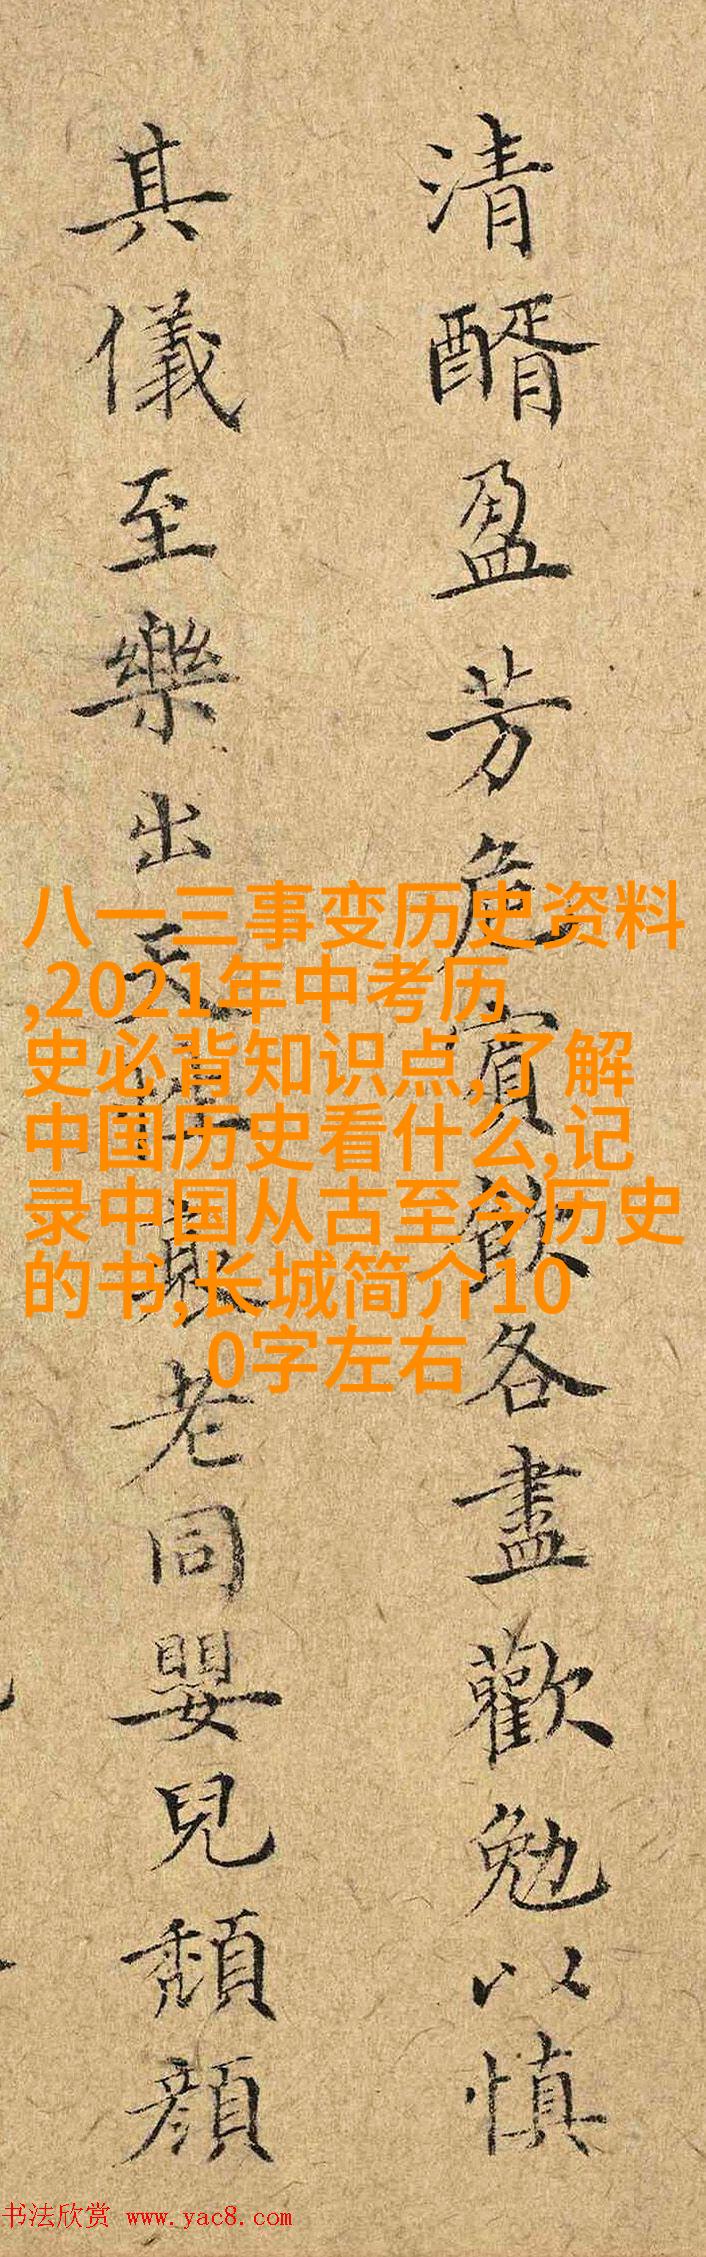 清醑盈芳卮賓各盡歡勉以慎
其儀至樂出天老同嬰兒頹顏
八一三事变历史资料
,2021年中考历
史必背知识点,了解
中国历史看什么,记
录中国从古至今历史
的书,长城简介10
0字左右
书法欣赏 www.yac8.com